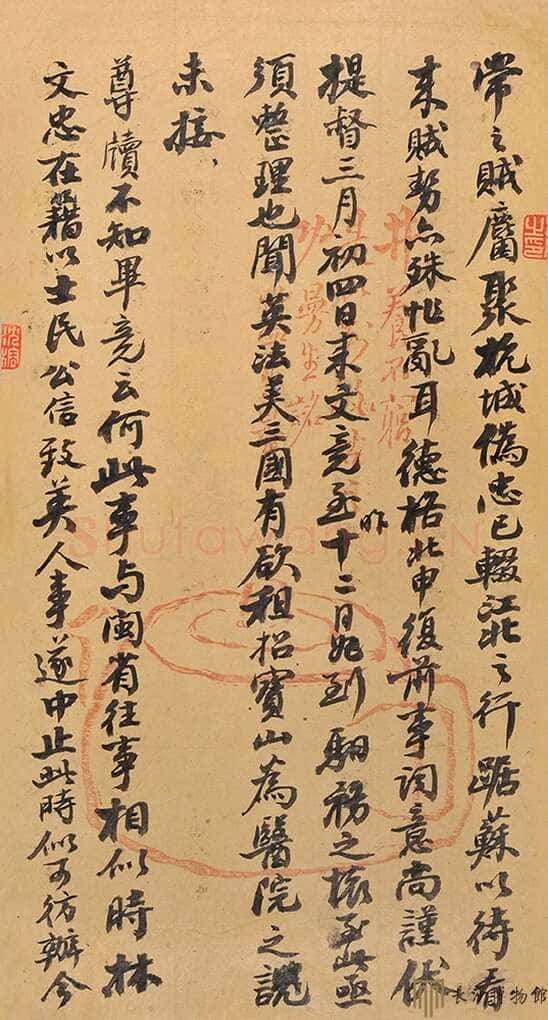 常之賊麕聚杭城偽忠已輟江北之行踞蘇以待看
來賊勢亦殊怍亂耳德格此申復前事詞意尚謹
提督三月初四日來文竟至昨十二日始到驲務之極至此亟
須整理也聞英法美三國有欲租招寶山為醫院之說
未接
尊牘不知畢竟云何此事與閩省往事相似時林
文忠在籍以士民公信致英人事遂中止此時似可仿辦今
長沙博物館
Shufawang.CN